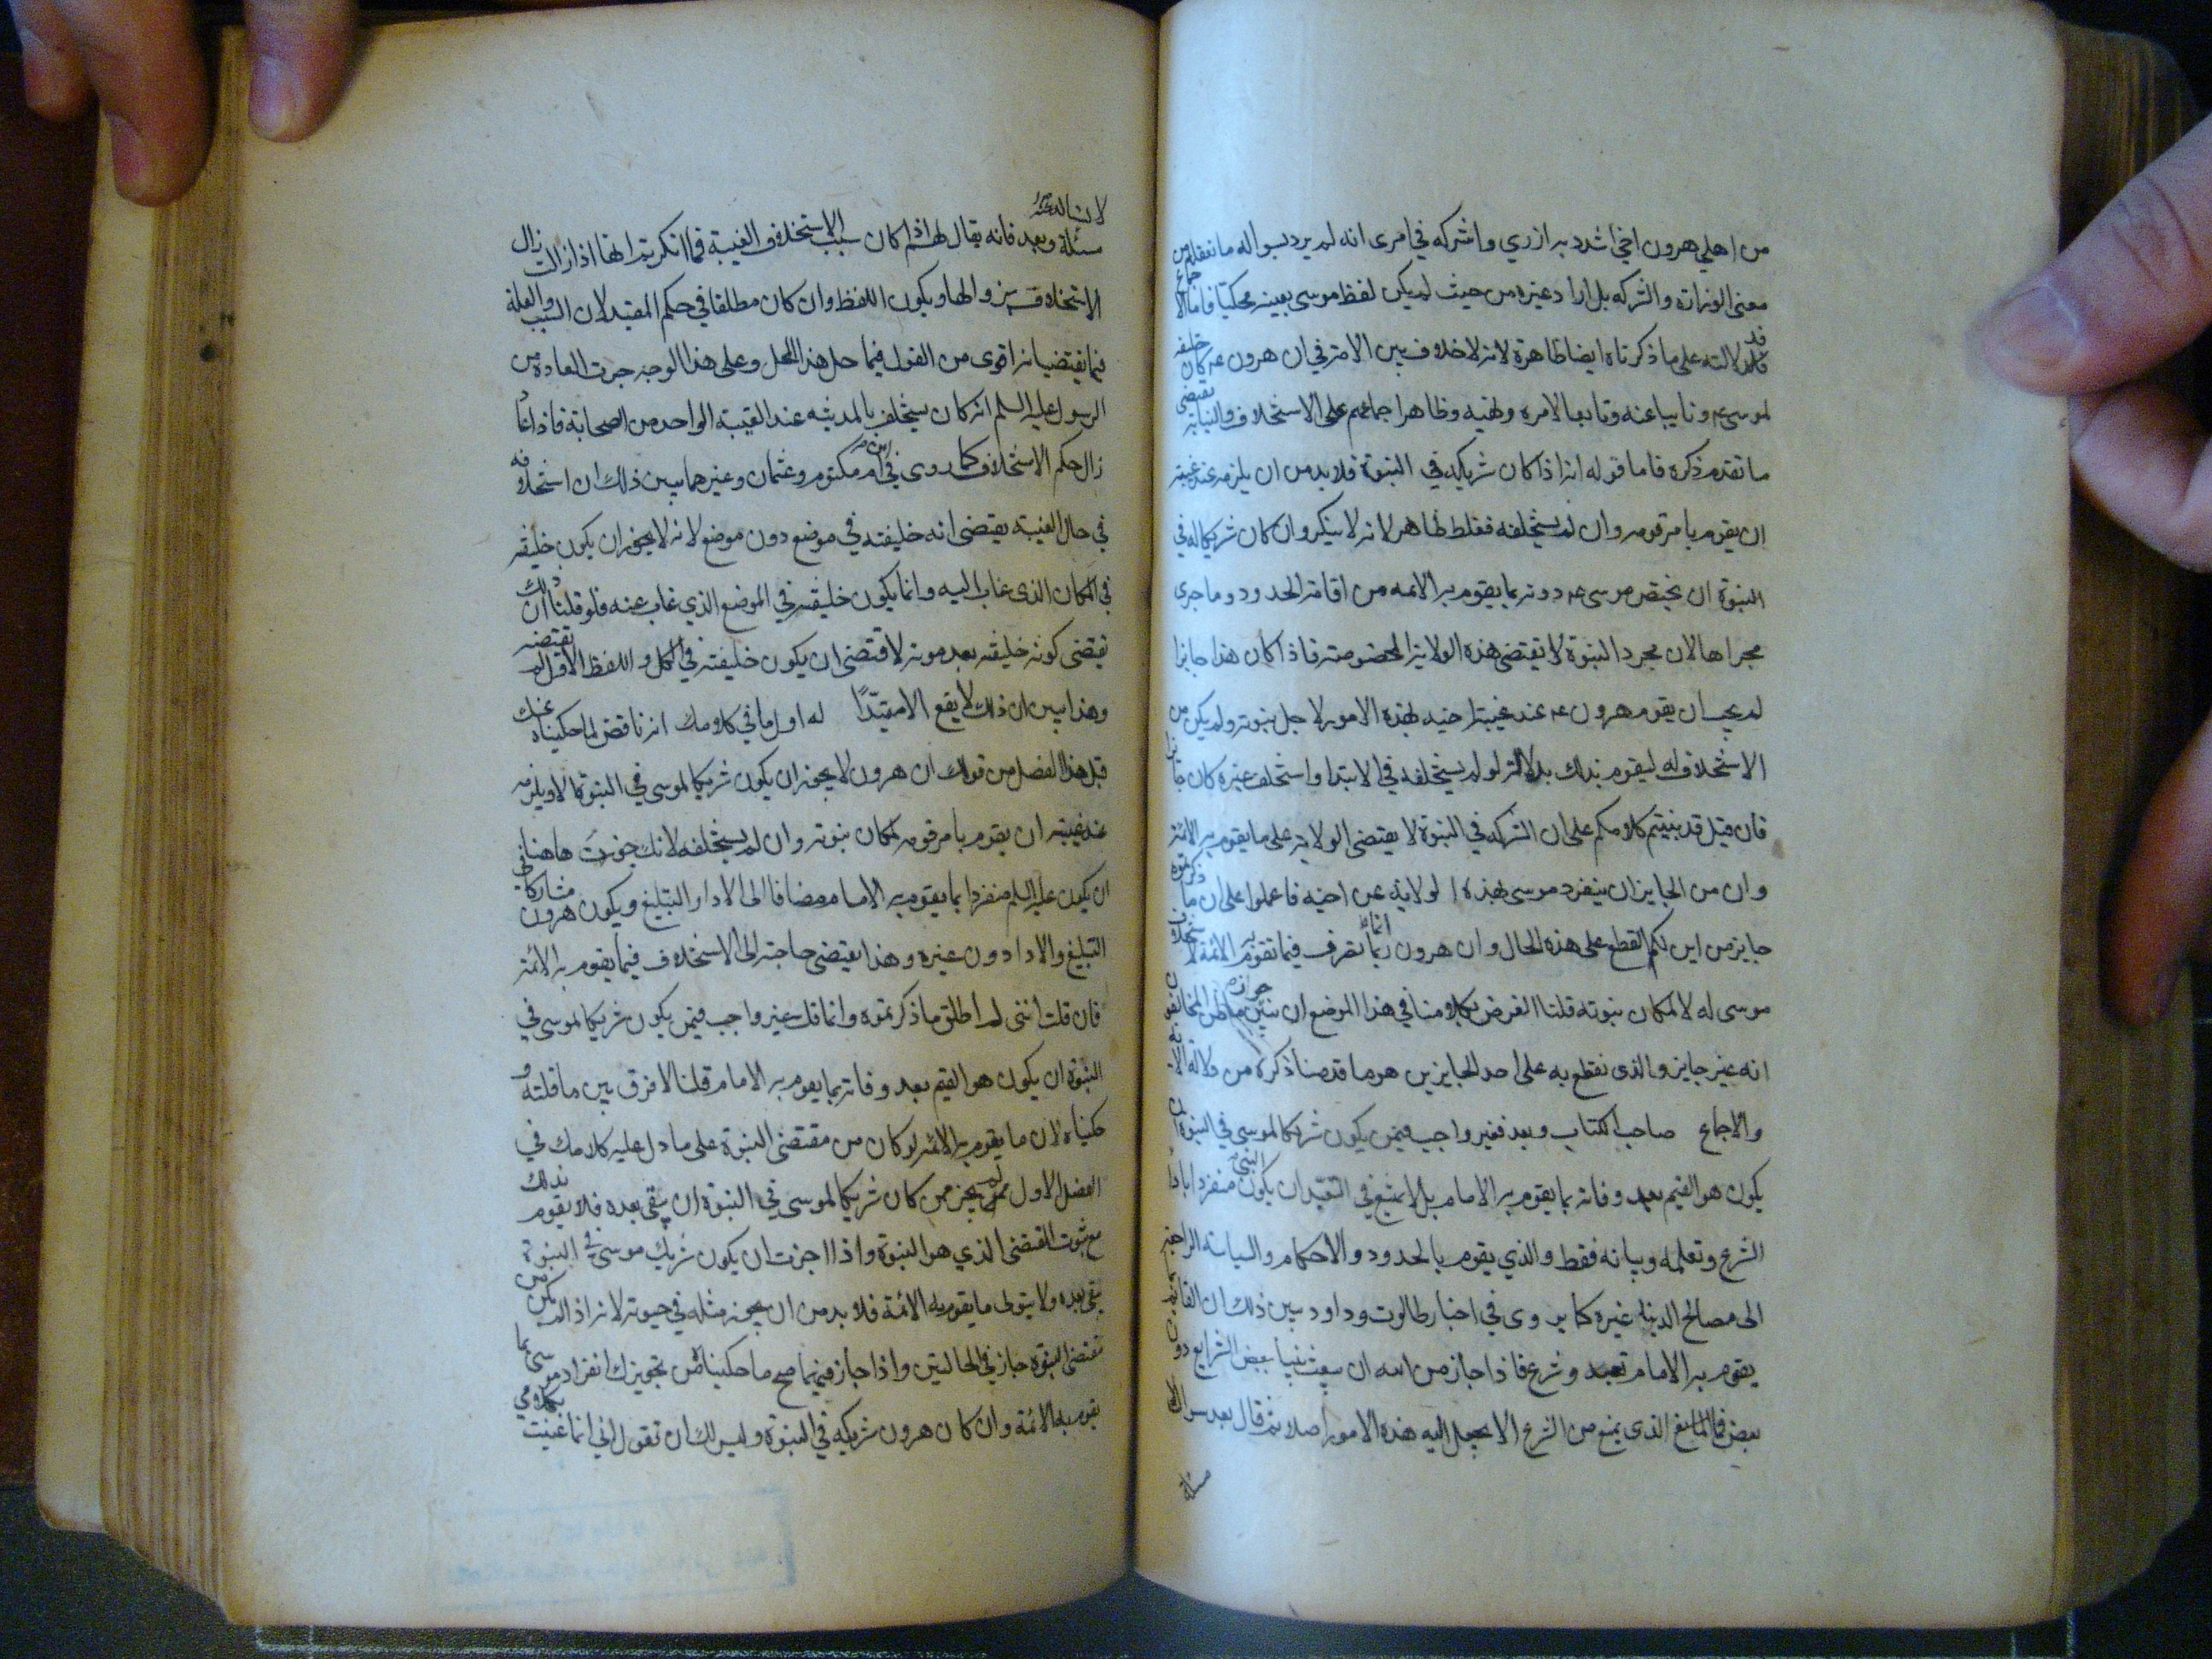 من اهلي هرون اخي اشدد به ازري واشركه في امرى انه لم يرد بسواله ما نعقله من
معنى الوزارة والشركه بل اراد غيره من حيث لم يكن لفظ موسى بعينه محكيا فاما الاجماع
فدلالته على ما ذكرناه ايضا ظاهرة لانه لاخلاف بين الامة في ان هرون عه كان خليفه
لموسى عه ونايبا عنه وتابعا لامره ونهيه وظاهر اجماعهم على الاستخلاف والنيابة يقتضى
ما تقدم ذكره فاما قوله انه اذا كان شريكه في النبوة فلا بد من ان يلزمه عند غيبته
ان يقوم بامر قومه وان لم يستخلفه فغلط ظاهر لانه لا ينكر وان كان شريكا له في
النبوة ان يختص موسى عه دونه بما يقوم به الائمه من اقامة الحدود وما جرى
مجراها لان مجرد النبوة لا يقتضى هذه الولاية المخصوصة فاذا كان هذا جايزا
لم يجب ان يقوم هرون عه عند غيبة اخيه بهذه الامور لاجل نبوته ولم يكن من
الاستخلاف له ليقوم بذلك بد لانه لو لم يستخلفه في الابتدا واستخلف غيره كان جايزا
فان قيل قد بنيتم كلامكم على ان الشركه في النبوة لا يقتضى الولاية على ما يقوم به الائمة
وان من الجايز ان ينفرد موسى بهذه الولاية عن اخيه فاعملوا على ان ما ذكرتموه
جايز من اين لكم القطع على هذه الحال وان هرون انما تصرف فيما تقوم به الائمة لاستخلاف
موسى له لا لمكان نبوته قلنا الغرض بكلامنا في هذا الموضع ان نبين جوازه ما ظن المخالفون
انه غير جايز والذى نقطع به على احد الجايزين هو ما قدمنا ذكره من دلالة الاية
والاجماع صاحب الكتاب وبعد فغير واجب فيمن يكون شريكا لموسى في النبوة ان
يكون هو القيم بعد وفاته بما يقوم به الامام بل لا يمتنع في التعبد ان يكون النبي منفردا باداء
الشرع وتعلمه وبيانه فقط والذي يقوم بالحدود والاحكام والسياسة الراجعة
الى مصالح الدنيا غيره كما يروى في اخبار طالوت وداود يبين ذلك ان القائم بما
يقوم به الامام تعبد وشرع فاذا جاز من الله ان يبعث نبيا ببعض الشرايع دون
بعض فما المانع الذى يمنع من الشرع الا يجعل اليه هذه الامور اصلا ثم قال بعد سوال
مسئلة
لا نساله عنه
مسئلة وبعد فانه يقال لهم اذا كان سبب الاستخلاف الغيبة فما انكرتم انها اذا زالت زال
الاستخلاف بزوالها ويكون اللفظ وان كان مطلقا في حكم المقيد لان السبب والعلة
فيما يقتضيانه اقوى من القول فيما حل هذا المحل وعلى هذا الوجه جرت العادة من
الرسول عليه السلم انه كان يستخلف بالمدينه عند الغيبة الواحد من الصحابة فاذا عاد
زال حكم الاستخلاف كما روى في ابن ام مكتوم وعثمان وغيرهما يبين ذلك ان استخلافه
في حال الغيبة يقتضى انه خليفته في موضع دون موضع لانه لا يجوز ان يكون خليفته
في المكان الذى غاب اليه وانما يكون خليفته في الموضع الذي غاب عنه فلو قلنا ان ذلك
يقتضى كونه خليفته بعد موته لاقتضى ان يكون خليفته في الكل واللفظ الاول لم يقتضه
وهذا يبين ان ذلك لا يقع الا مقيدا له اول ما في كلامك انه ناقض لما حكيناه عنك
قبل هذا الفصل من قولك ان هرون لا يجوز ان يكون شريكا لموسى في النبوة الا ويلزمه
عند غيبته ان يقوم بامر قومه لمكان نبوته وان لم يستخلفه لانك جوزت هاهنا
ان يكون عليه السلم منفردا بما يقوم به الامام مضافا الى الادا والتبليغ ويكون هرون مشاركا في
التبليغ والادا دون غيره وهذا يقتضى حاجته الى الاستخلاف فيما يقوم به الائمة
فان قلت انني لم اطلق ما ذكرتموه وانما قلت غير واجب فيمن يكون شريكا لموسى في
النبوة ان يكون هو القيم بعد وفاته بما يقوم به الامام قلنا لا فرق بين ما قلته و
حكيناه لان ما يقوم به الائمة لو كان من مقتضى النبوة على ما دل عليه كلامك في
الفصل الاول لم يجز فيمن كان شريكا لموسى في النبوة ان يبقى بعده فلا يقوم بذلك
مع ثبوت المقتضى الذي هو النبوة واذا اجزت ان يكون شريك موسى في النبوة
يبقى بعده ولا يتولى ما يقوم به الائمة فلا بد من ان يجوز مثله في حيوته لانه اذا لم يكن من
مقتضى النبوة جاز في الحالتين واذا جاز فيهما صح ما حكيناه من تجويزك انفراد موسى بما
يقوم به الائمة وان كان هرون شريكه في النبوة وليس لك ان تقول اني انما عنيت بكلامي